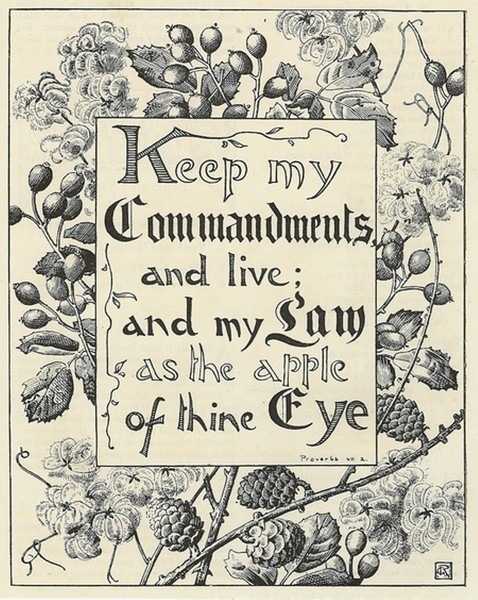 Keep my
Commandments,
and live;
and my Law
as the apple
of thine Eye
Proverbs vii 2.